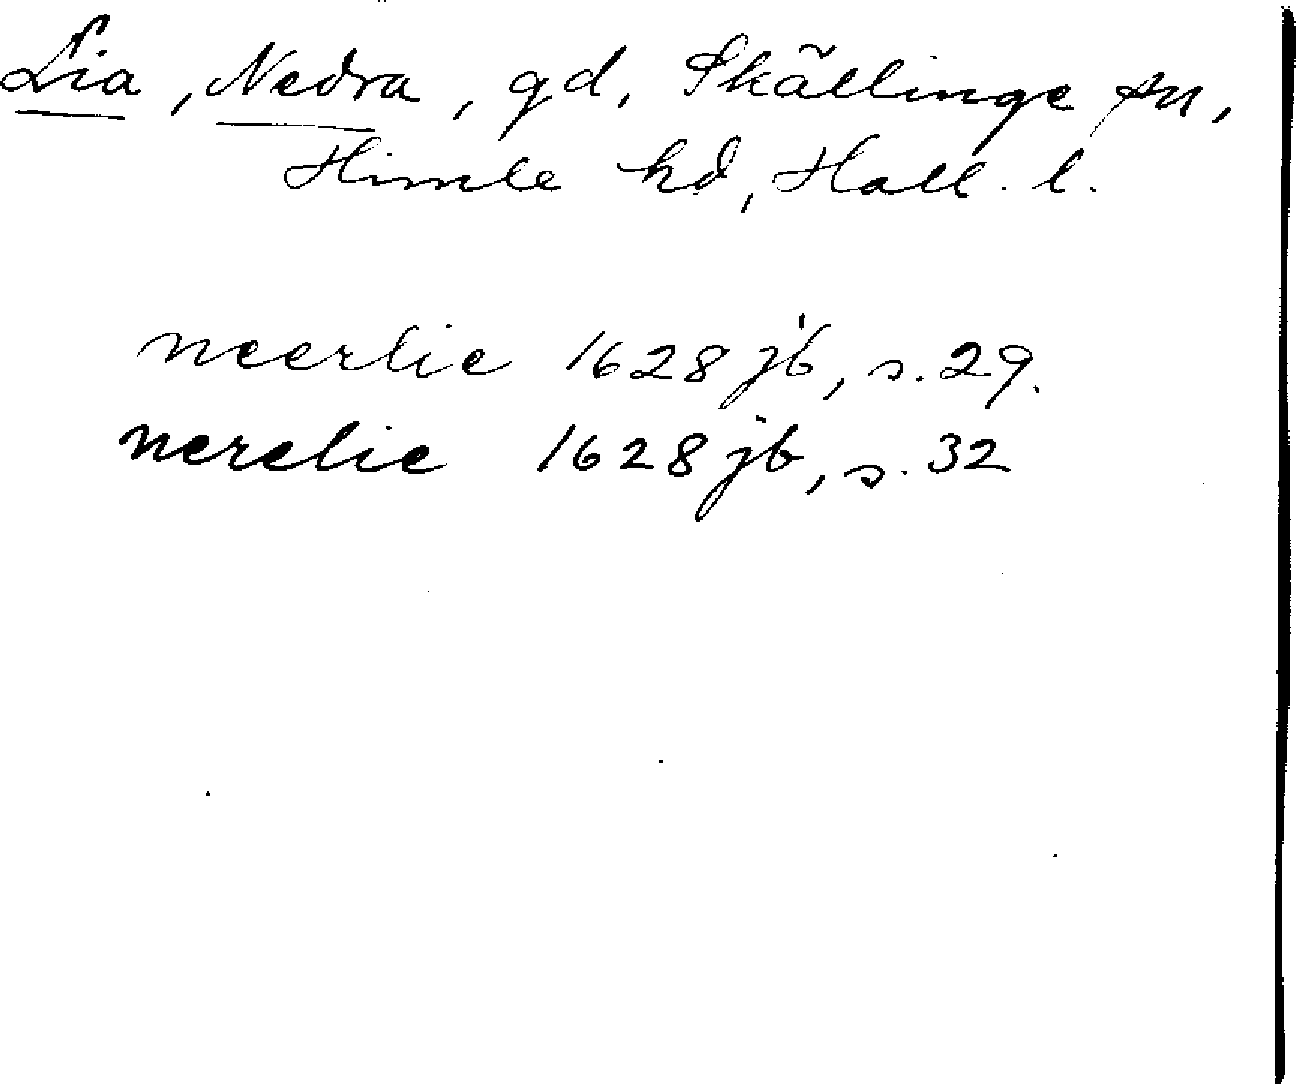 Lia, Nedra, gd, Skällinge sn,
Himle hd, Hall. l.
neerlie 1628 jb, s. 29.
nerelie 1628 jb, s. 32